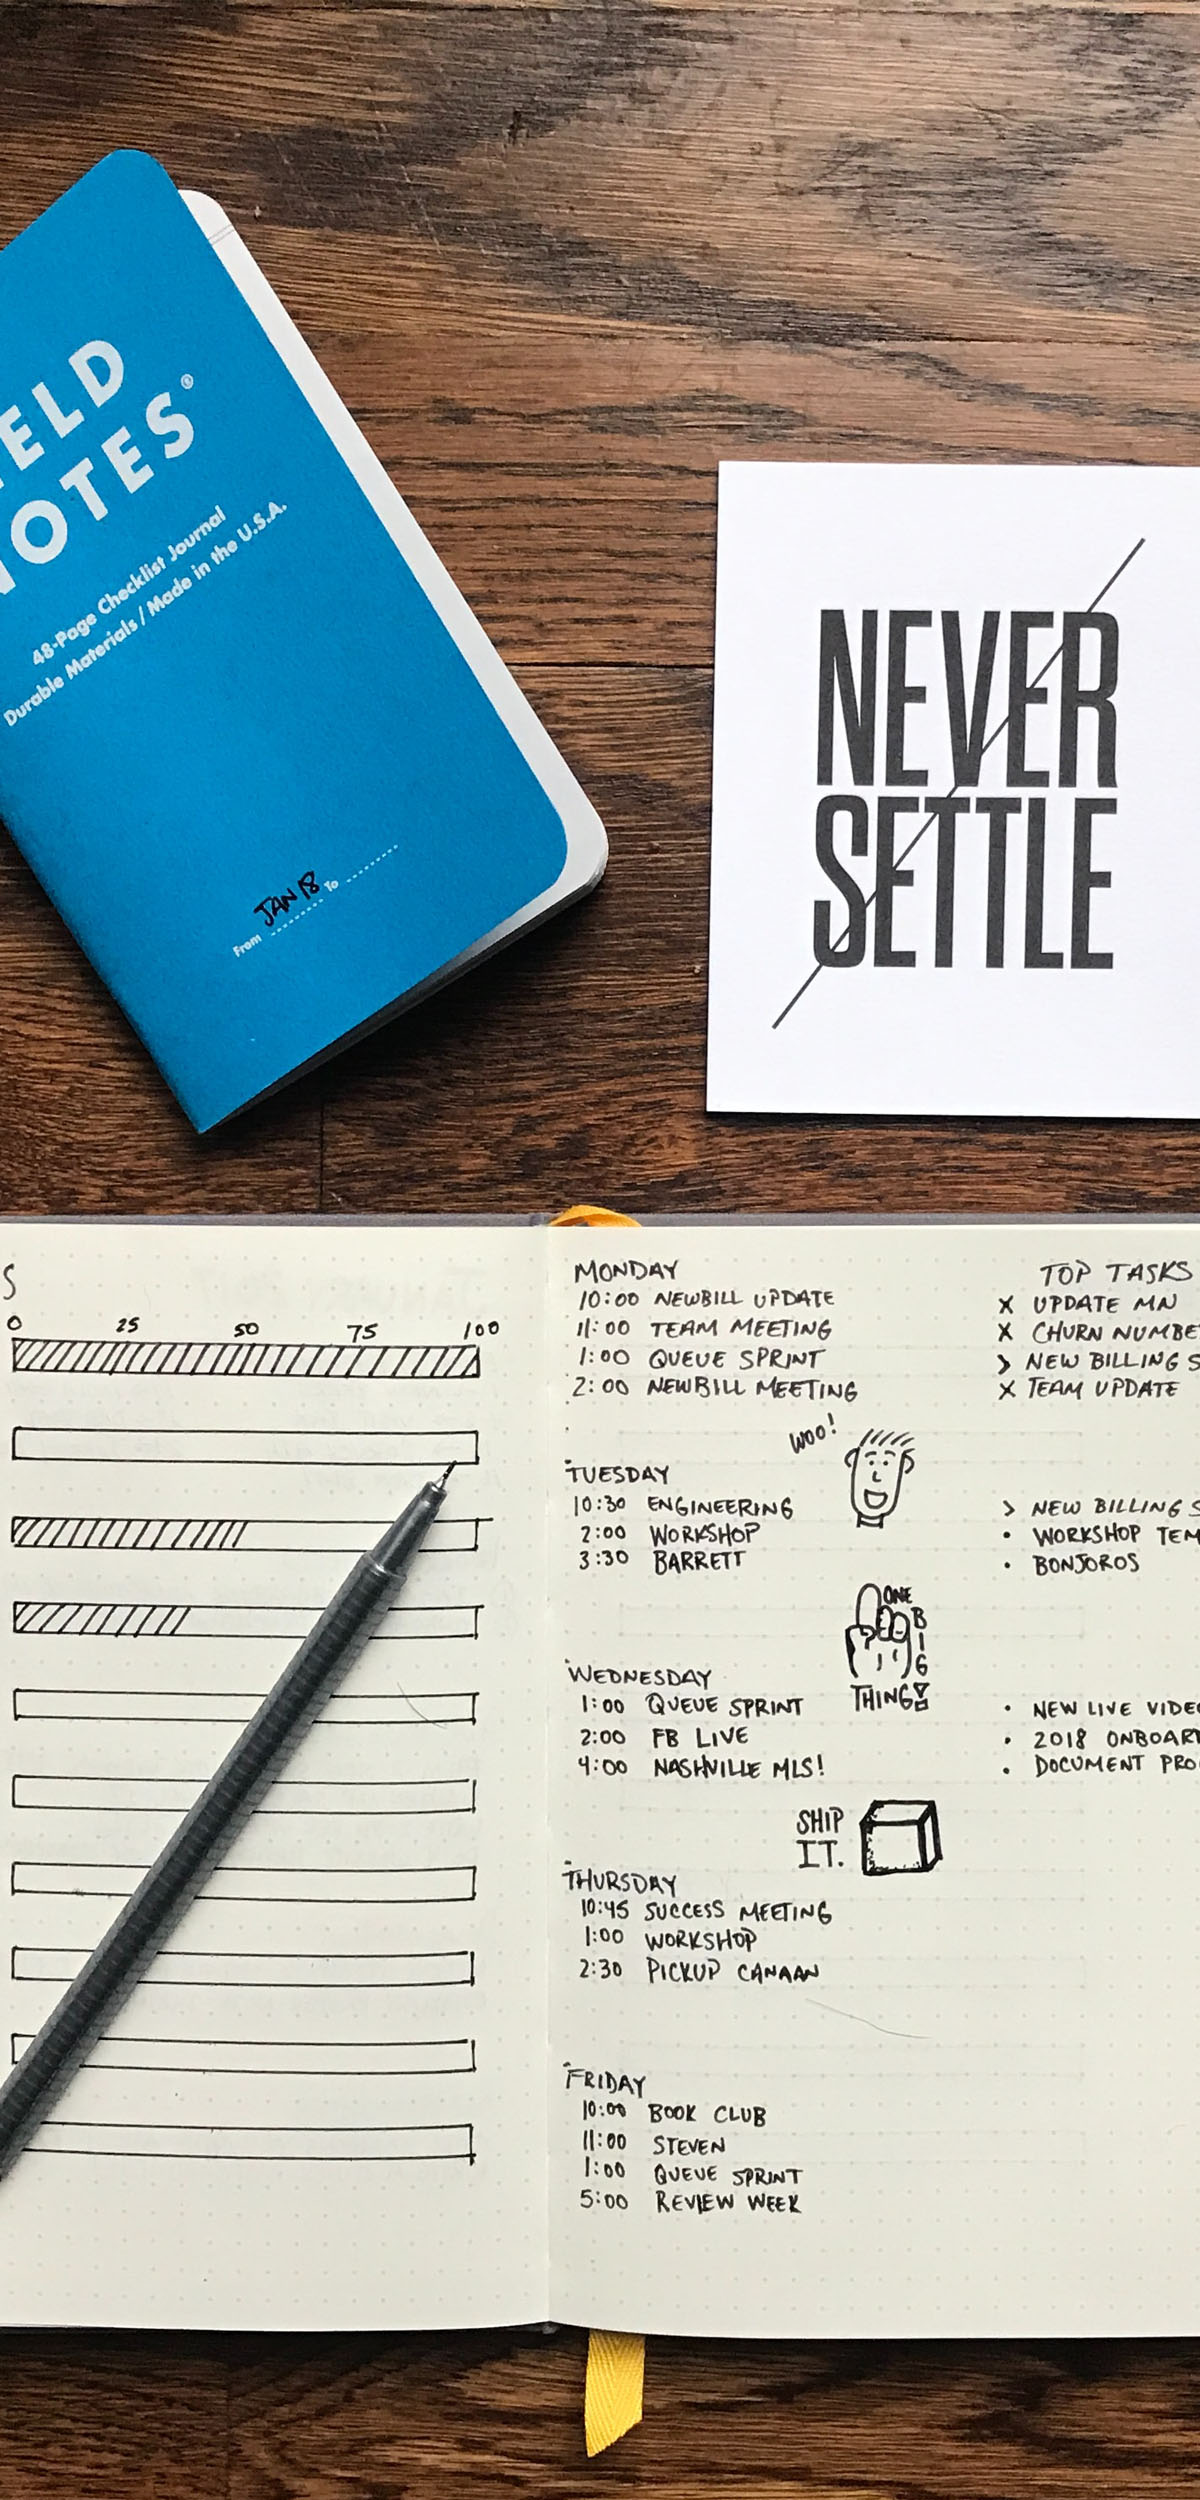 ELD
OTES®
48-Page Checklist Journal
Durable Materials / Made in the U.S.A.
From JAN 18 To
NEVER
SETTLE
S
0 25 50 75 100
MONDAY
10:00 NEWBILL UPDATE
11:00 TEAM MEETING
1:00 QUEUE SPRINT
2:00 NEWBILL MEETING
WOO!
TUESDAY
10:30 ENGINEERING
2:00 WORKSHOP
3:30 BARRETT
ONE
BIG
THING!
WEDNESDAY
1:00 QUEUE SPRINT
2:00 FB LIVE
4:00 NASHVILLE MLS!
SHIP
IT.
THURSDAY
10:45 SUCCESS MEETING
1:00 WORKSHOP
2:30 PICKUP CANAAN
FRIDAY
10:00 BOOK CLUB
11:00 STEVEN
1:00 QUEUE SPRINT
5:00 REVIEW WEEK
TOP TASKS
X UPDATE MN
X CHURN NUMBE
> NEW BILLING S
X TEAM UPDATE
> NEW BILLING S
• WORKSHOP TEM
• BONJOROS
• NEW LIVE VIDEO
• 2018 ONBOARD
• DOCUMENT PRO